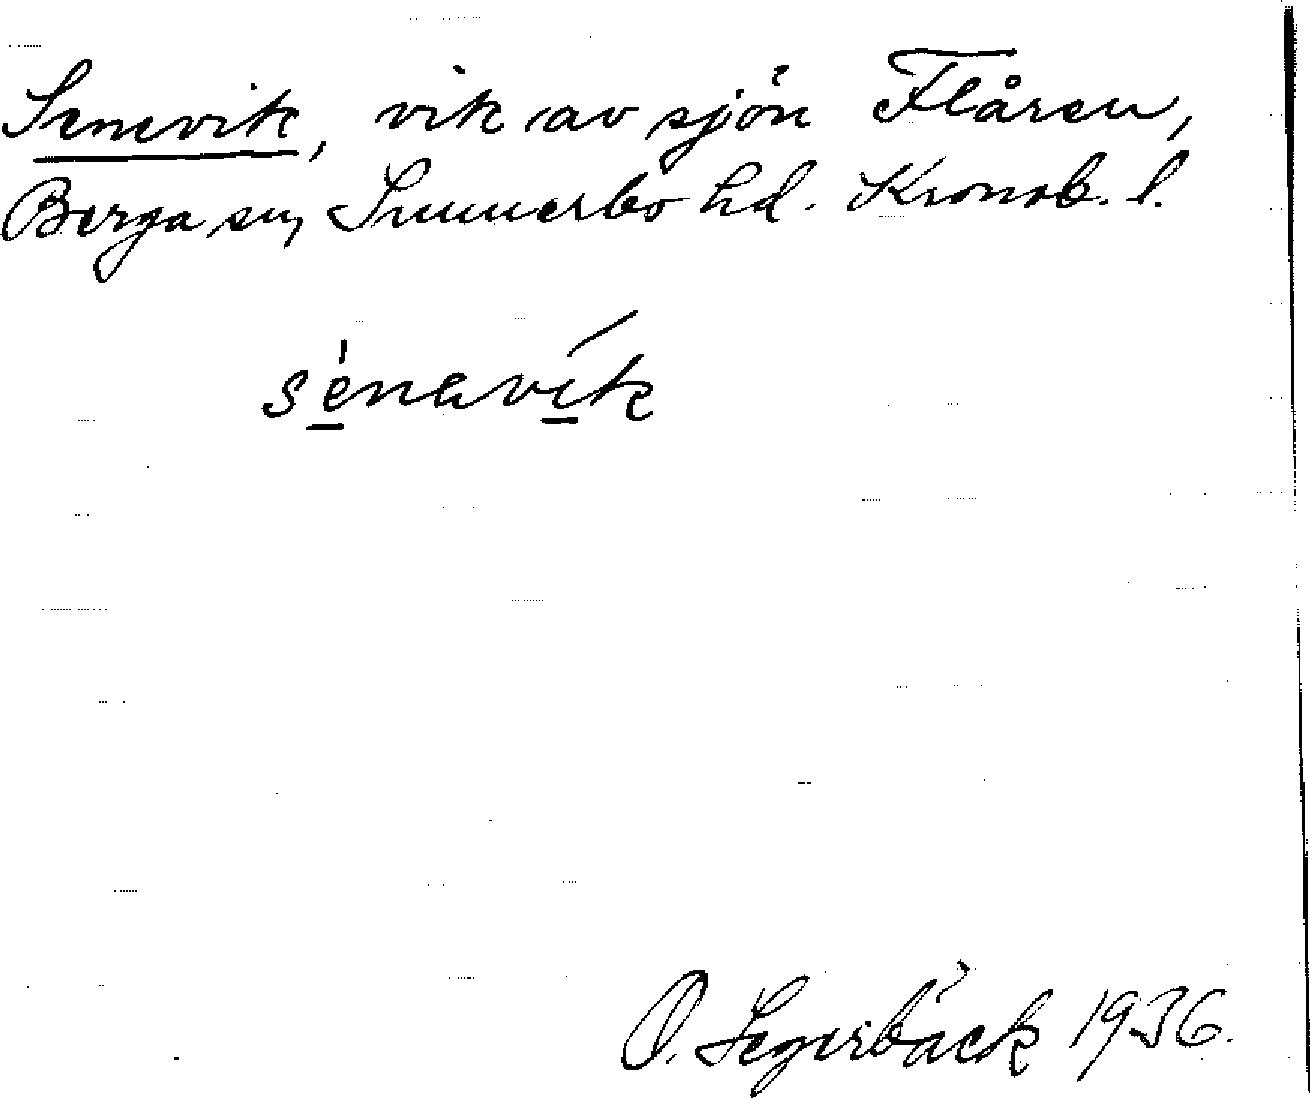 Senevik, vik av sjön Flåren,
Berga sn, Sunnerbo hd. Kronob. l.
sènavík
O. Segerbäck 1936.